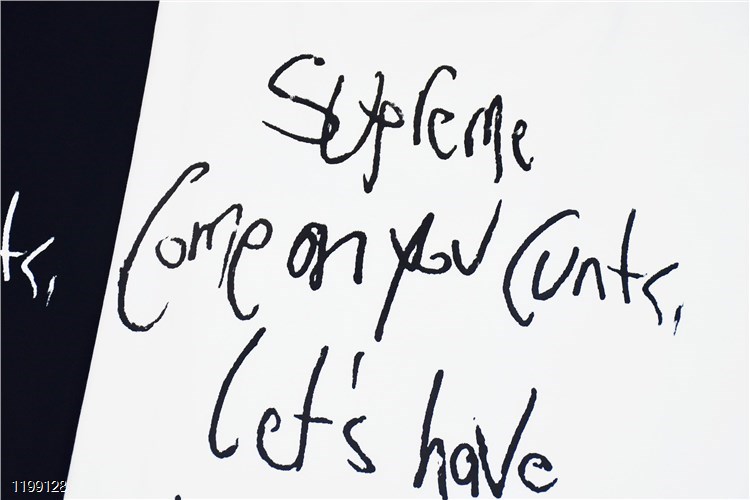 Supreme
Come on you cunts,
ts,
let's have
1199128